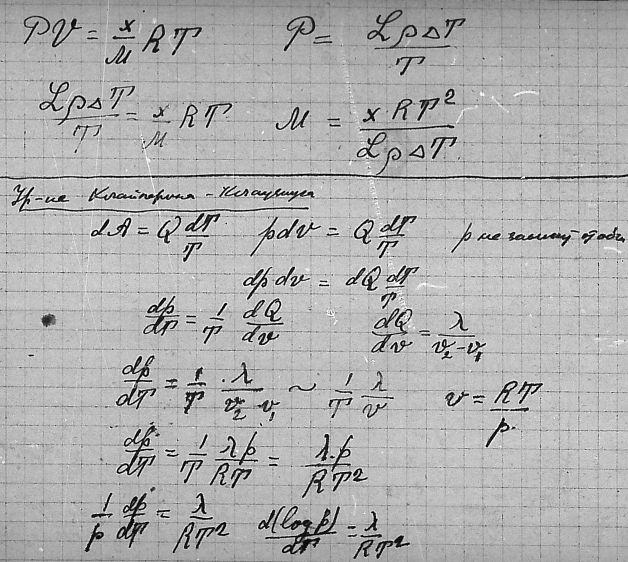 PV = x/M RT    P = LρΔT/T
LρΔT/T = x/M RT    M = xRT²/LρΔT
Ур-ие Клайперона - Клаузиуса
dA = Q dT/T    pdv = Q dT/T    p не зависит от объ
dp dv = dQ dT/T
dp/dT = 1/T dQ/dv    dQ/dv = λ/(v₂-v₁)
dp/dT = 1/T · λ/(v₂-v₁) ~ 1/T λ/v    v = RT/p
dp/dT = 1/T λp/RT = λ·p/RT²
1/p dp/dT = λ/RT²    d(log p)/dT = λ/RT²